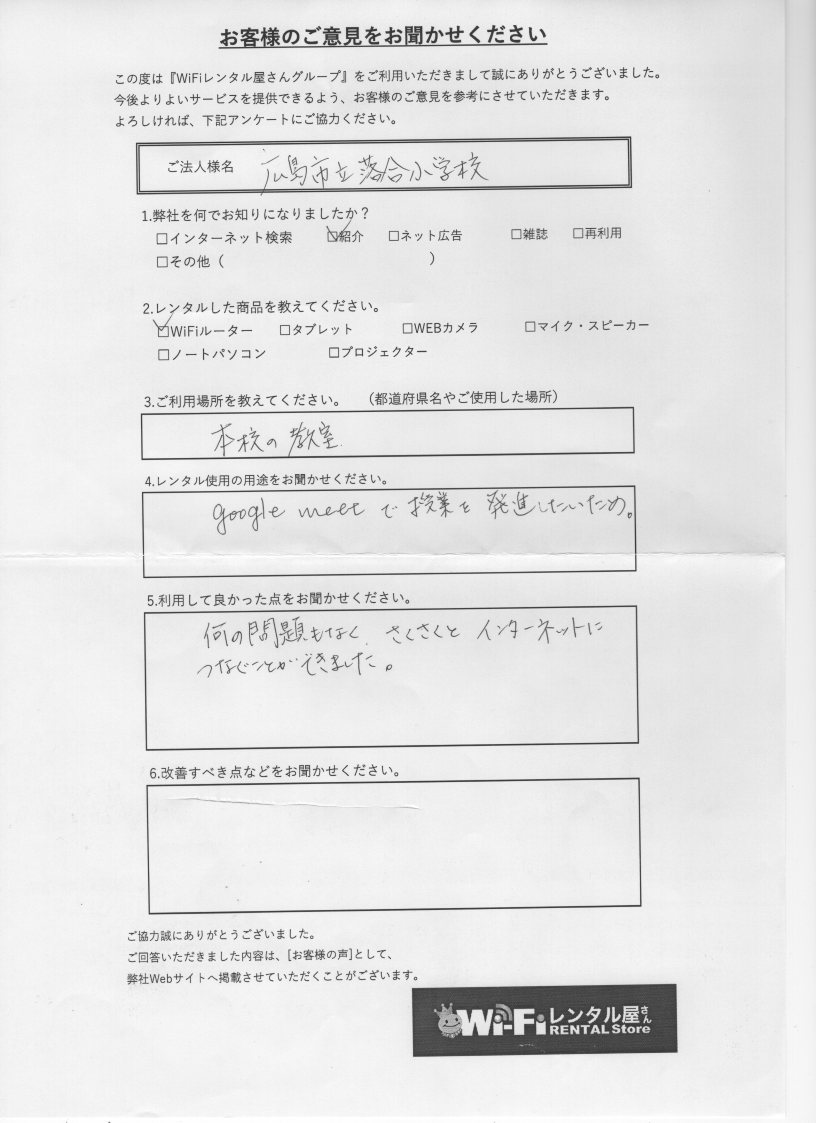 お客様のご意見をお聞かせください
この度は『WiFiレンタル屋さんグループ』をご利用いただきまして誠にありがとうございました。
今後よりよいサービスを提供できるよう、お客様のご意見を参考にさせていただきます。
よろしければ、下記アンケートにご協力ください。
ご法人様名 広島市立落合小学校
1.弊社を何でお知りになりましたか？
□インターネット検索 ☑紹介 □ネット広告 □雑誌 □再利用
□その他（ ）
2.レンタルした商品を教えてください。
☑WiFiルーター □タブレット □WEBカメラ □マイク・スピーカー
□ノートパソコン □プロジェクター
3.ご利用場所を教えてください。 （都道府県名やご使用した場所）
本校の教室.
4.レンタル使用の用途をお聞かせください。
google meet で授業を発進したいため。
5.利用して良かった点をお聞かせください。
何の問題もなく、さくさくと インターネットに
つなぐことができました。
6.改善すべき点などをお聞かせください。
ご協力誠にありがとうございました。
ご回答いただきました内容は、[お客様の声]として、
弊社Webサイトへ掲載させていただくことがございます。
Wi-Fiレンタル屋さん
RENTAL Store